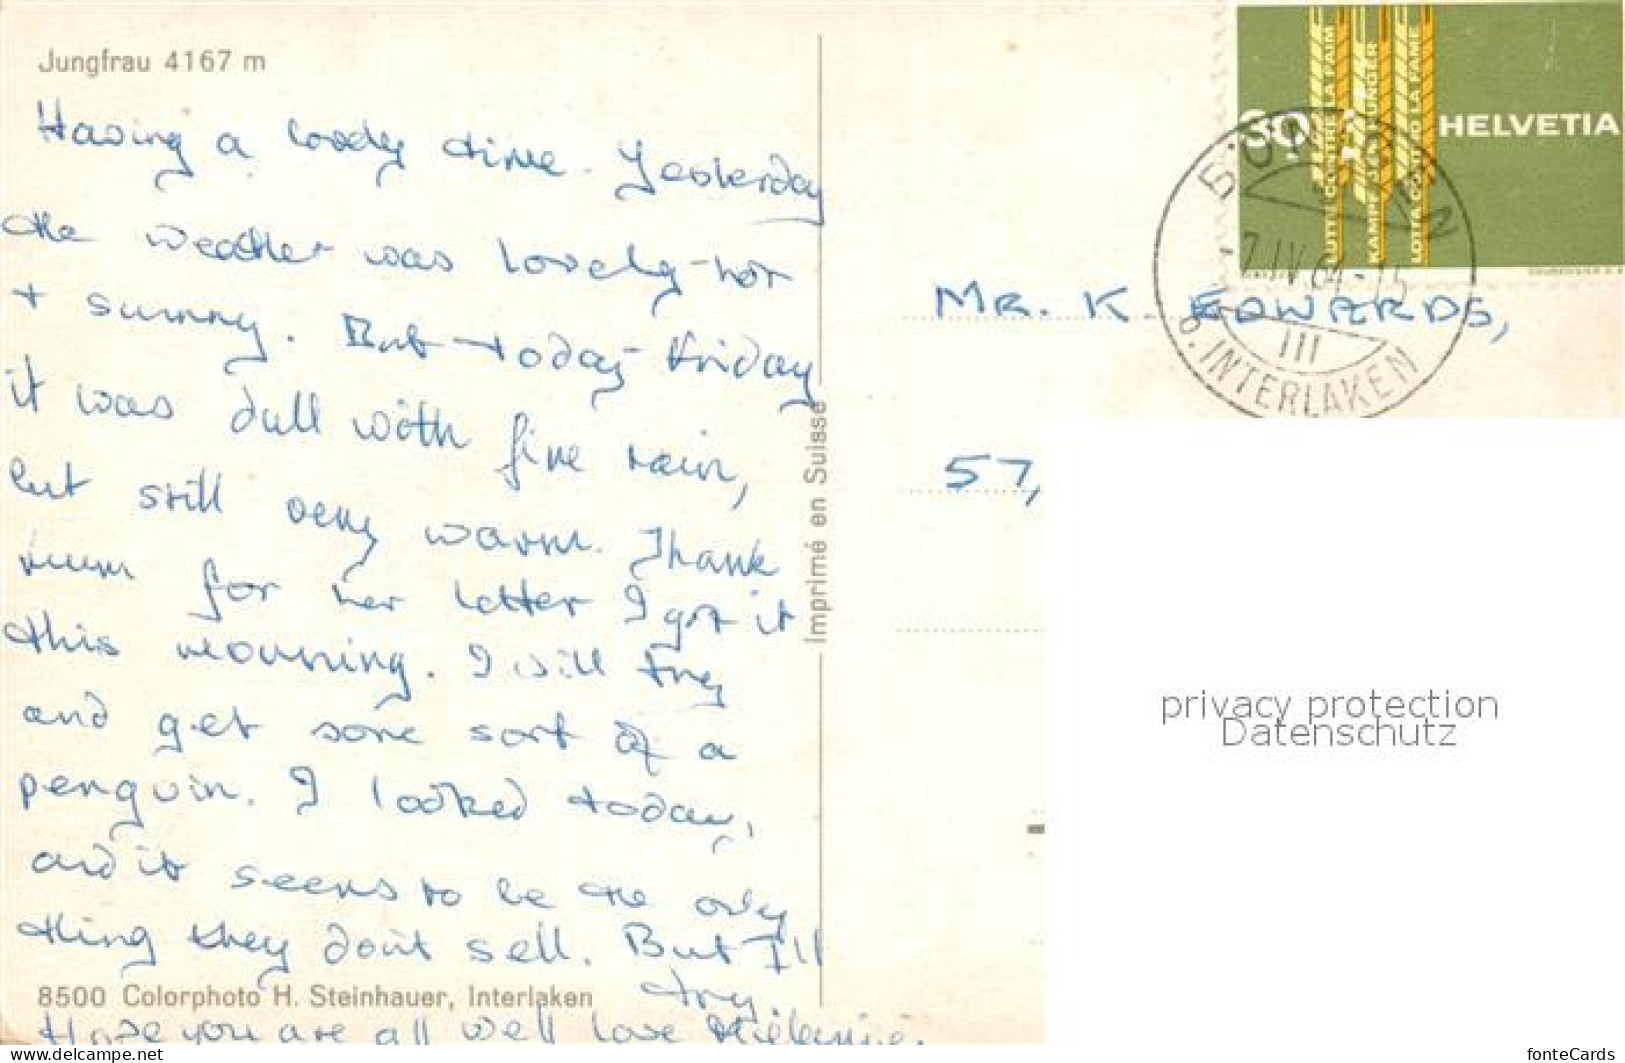 Jungfrau 4167 m
Having a lovely time. Yesterday
the weather was lovely-hot
+ sunny. But today-Friday
it was dull with fine rain,
but still very warm. Thank
mum for her letter I got it
this mourning. I will try
and get some sort of a
penguin. I looked today,
and it seems to be the only
thing they don't sell. But I'll
try.
8500 Colorphoto H. Steinhauer, Interlaken
Hope you are all well love
Imprimé en Suisse
30 HELVETIA
LUTTE CONTRE LA FAIM
KAMPF DEM HUNGER
LOTTA CONTRO LA FAME
COURVOISIER S.A.
BÖNIGEN
b. INTERLAKEN
III
MR. K. EDWARDS,
57,
privacy protection
Datenschutz
www.delcampe.net
fonteCards